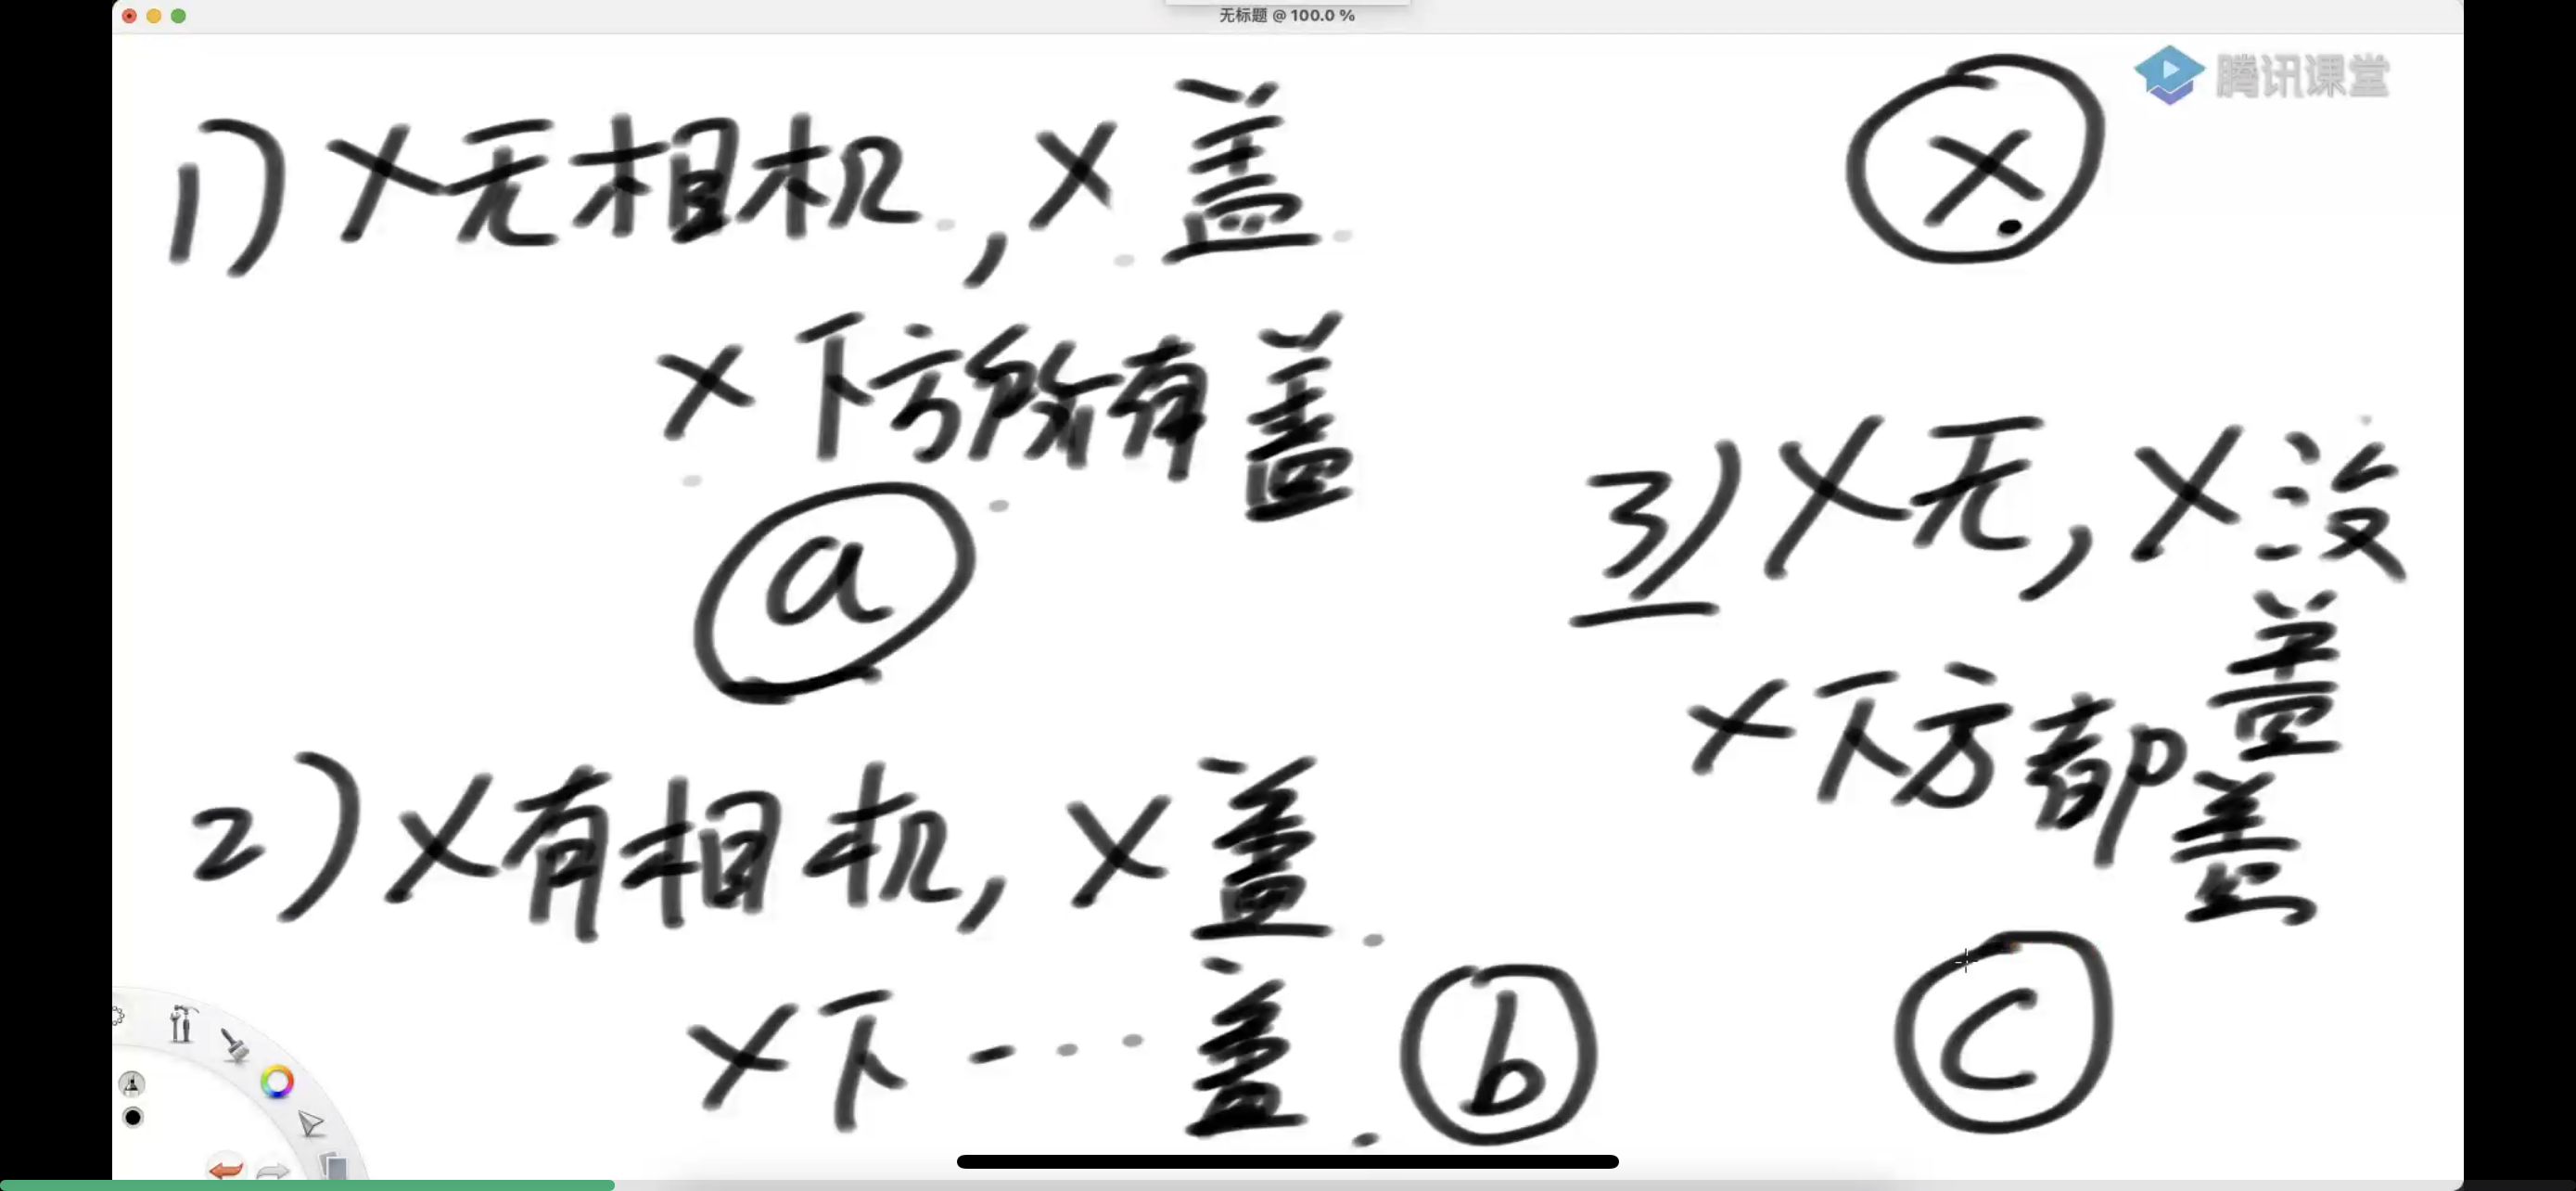 无标题 @ 100.0 %
腾讯课堂
1) X无相机, X盖.
X下方所有盖
a
2) X有相机, X盖.
X下 - · · 盖.
b
X
3) X无, X没盖
X下方都盖
c